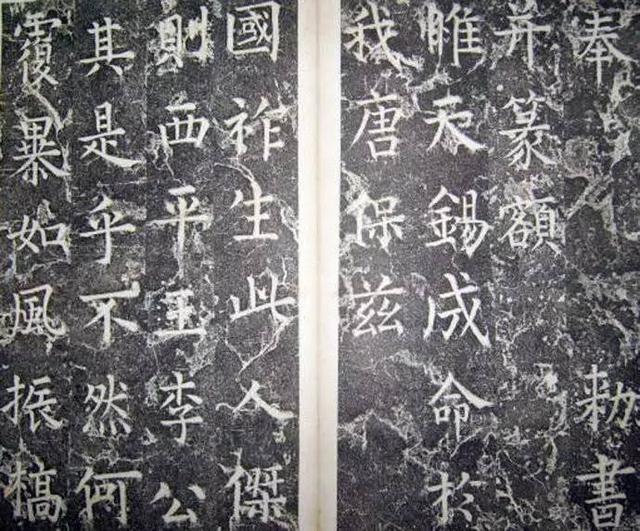 奉 勑書
并篆額
唯天錫成命於
我唐保茲
國祚生此人傑
則西平王李公
其是乎不然何
覆暴如風振槁